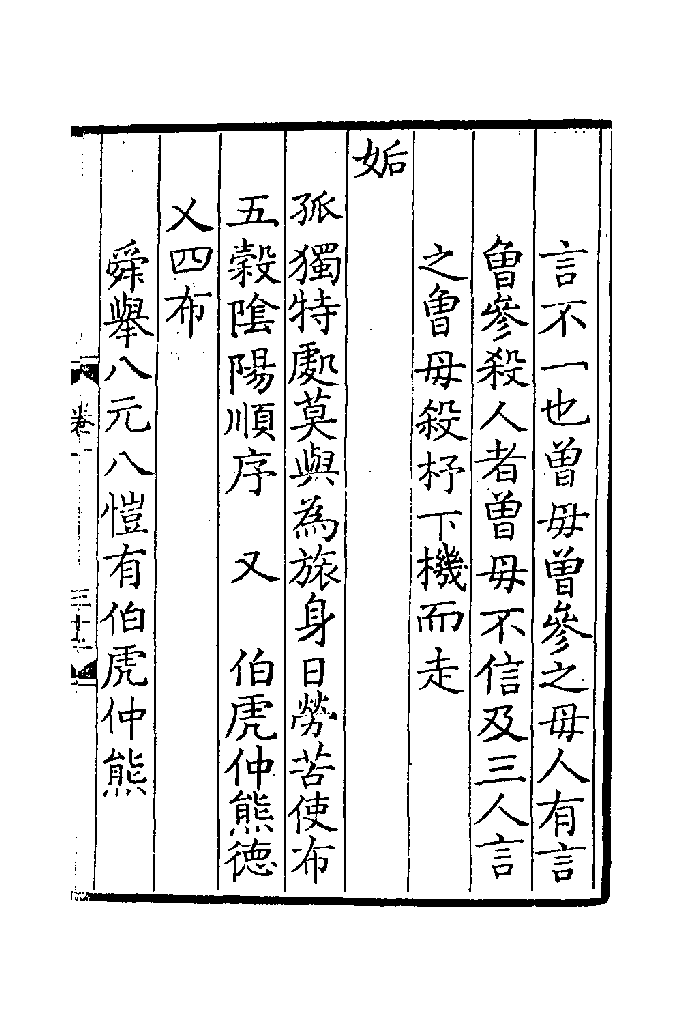 言不一也曾毋曾參之毋人有言
曾參殺人者曾毋不信及三人言
之曾毋殺杼下機而走
姤
孤獨特處莫與為旅身日勞苦使布
五穀陰陽順序　又　伯虎仲熊德
乂四布
舜舉八元八愷有伯虎仲熊
卷一
三十二